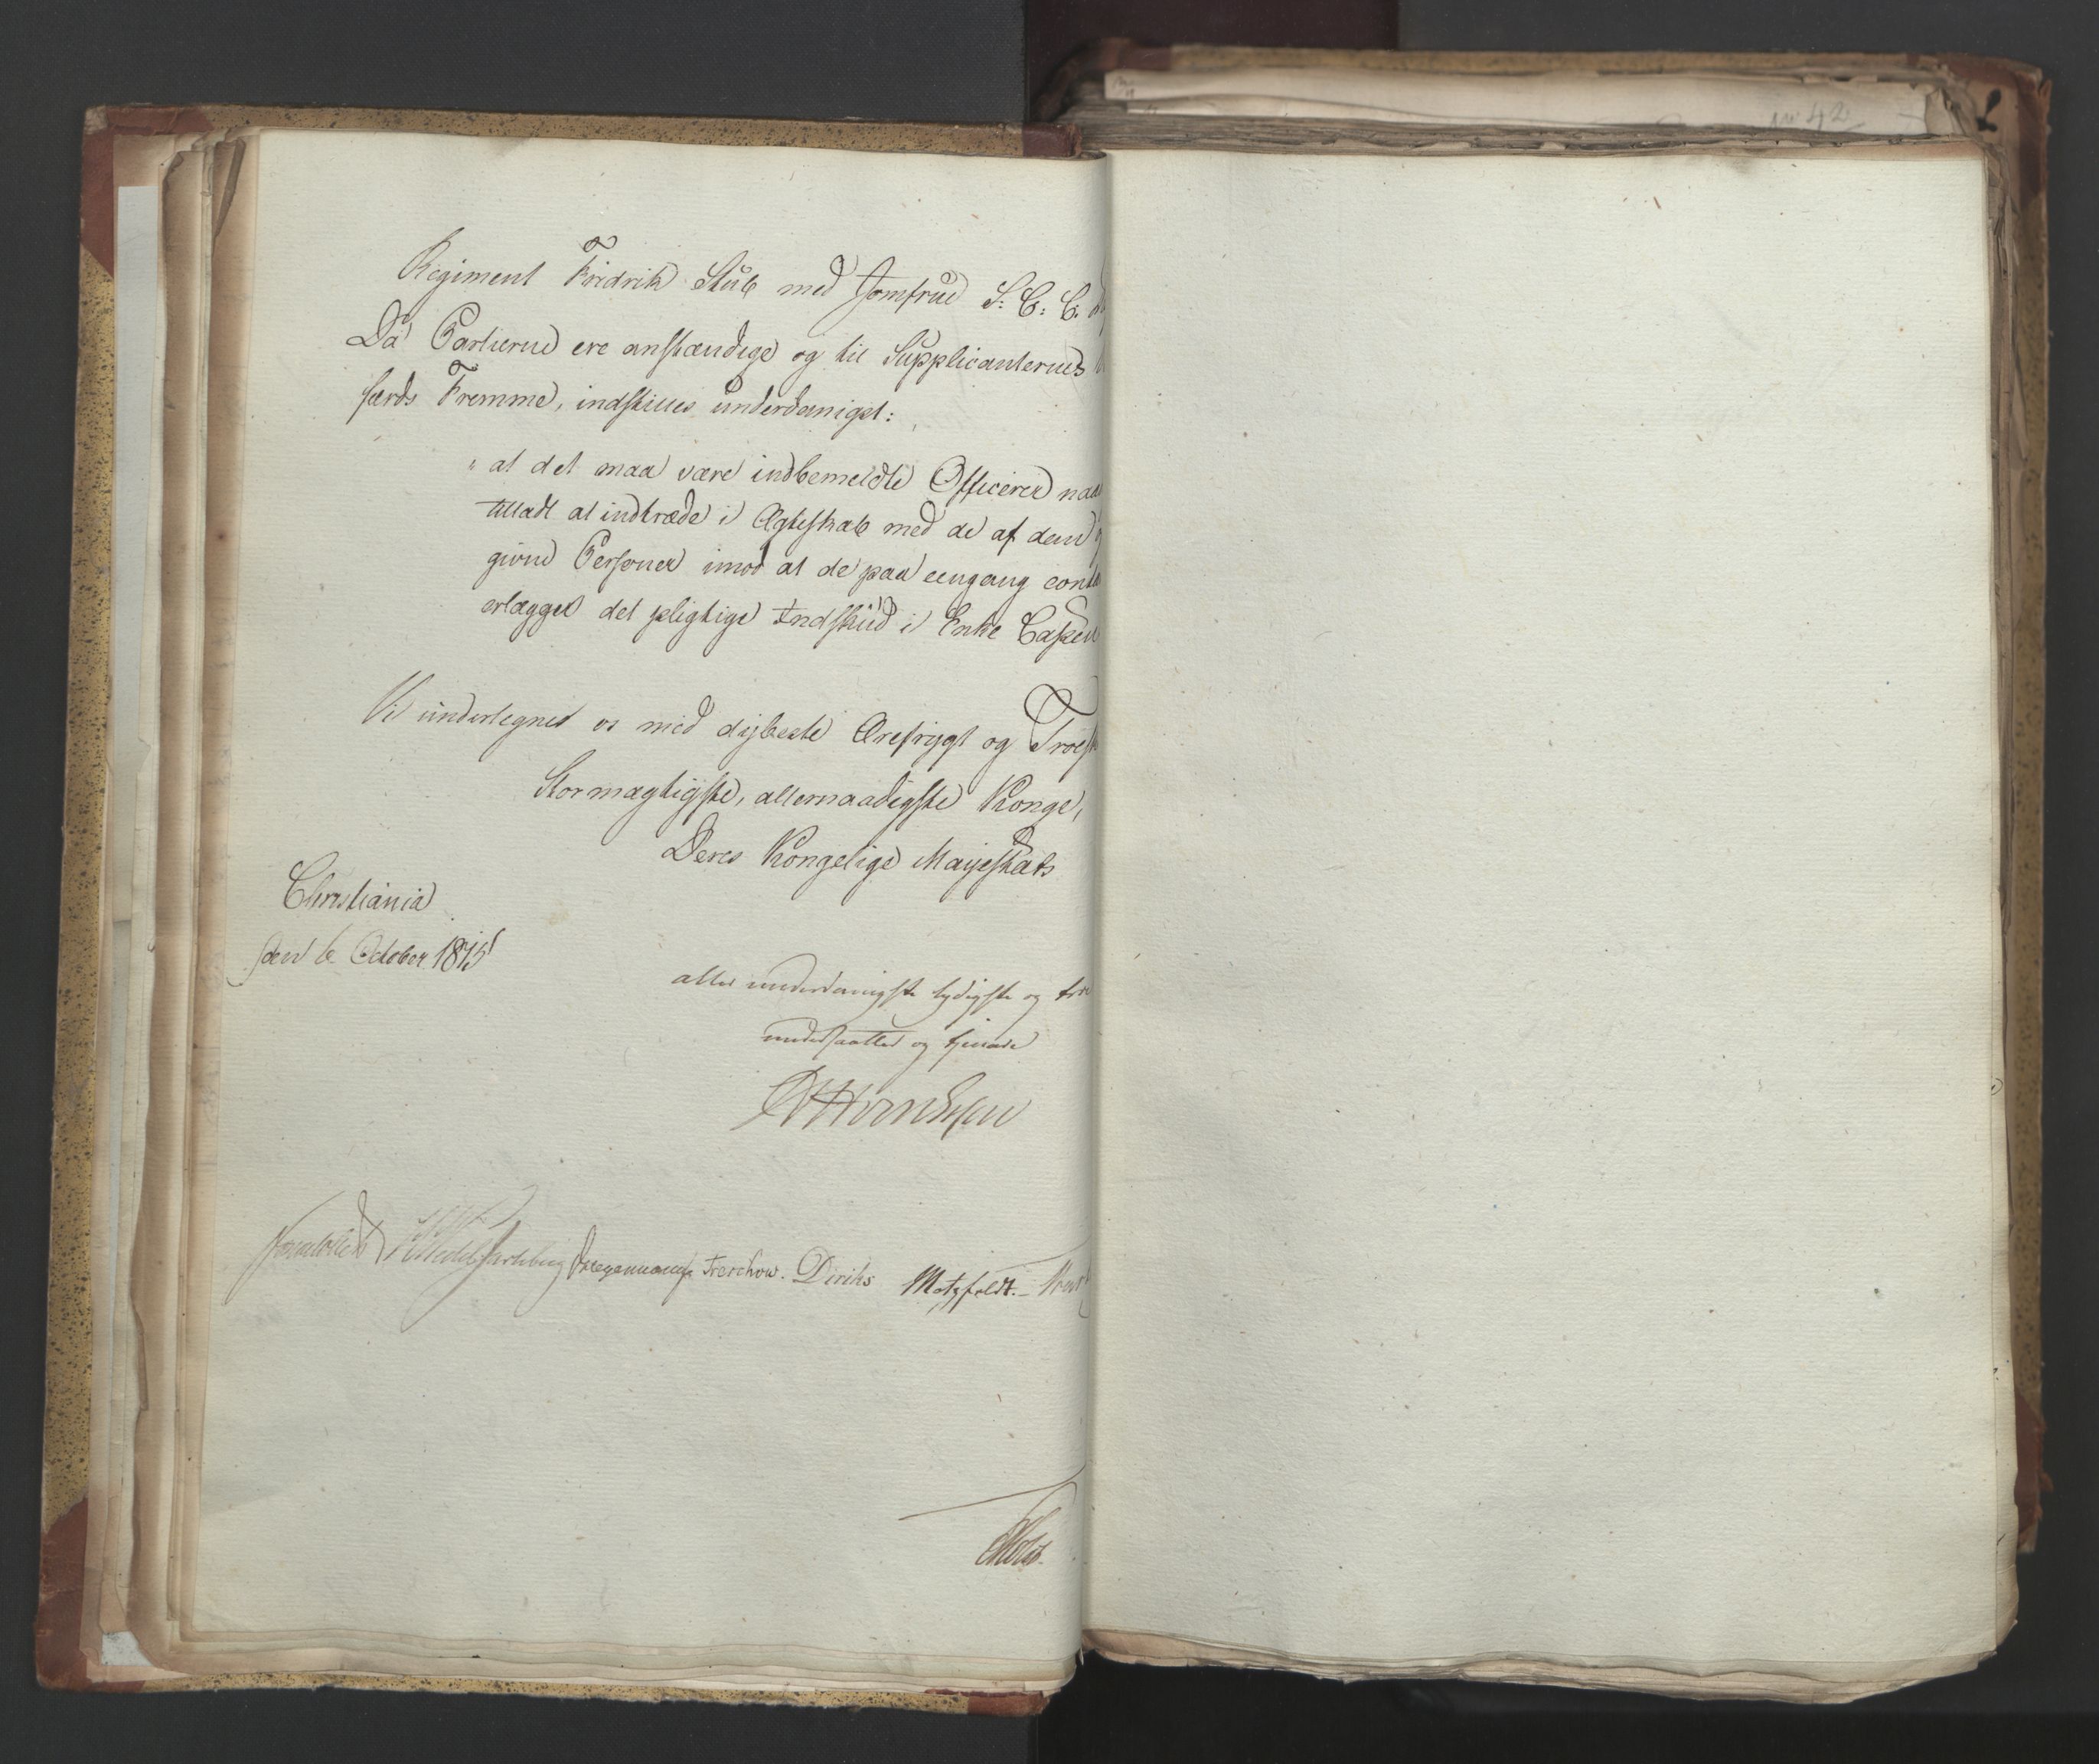 Regiment Fridrik Stub med Jomfrue S: C: C.
Da Partierne ere anstændige og til Supplicanternes
færds Fremme, indstilles underdanigst:
" at det maa være indbemeldte Officerer naa
tilladt at indtræde i Ægteskab med de af dem
givne Personer imod at de paa eengang conta
erlægger det pligtige Indskud i Enke Cassen
Vi undertegner os med dybeste Ærefrygt og Troesk
Stormægtigste, allernaadigste Konge,
Deres Kongelige Majestæts
Christiania
den 6 October 1815
aller underdanigste lydigste og troe
undersaatter og tjenere
Sommerhielm Wedel Jarlsberg Hegermann Treschow. Diriks Motzfeldt. -
Holst.
42